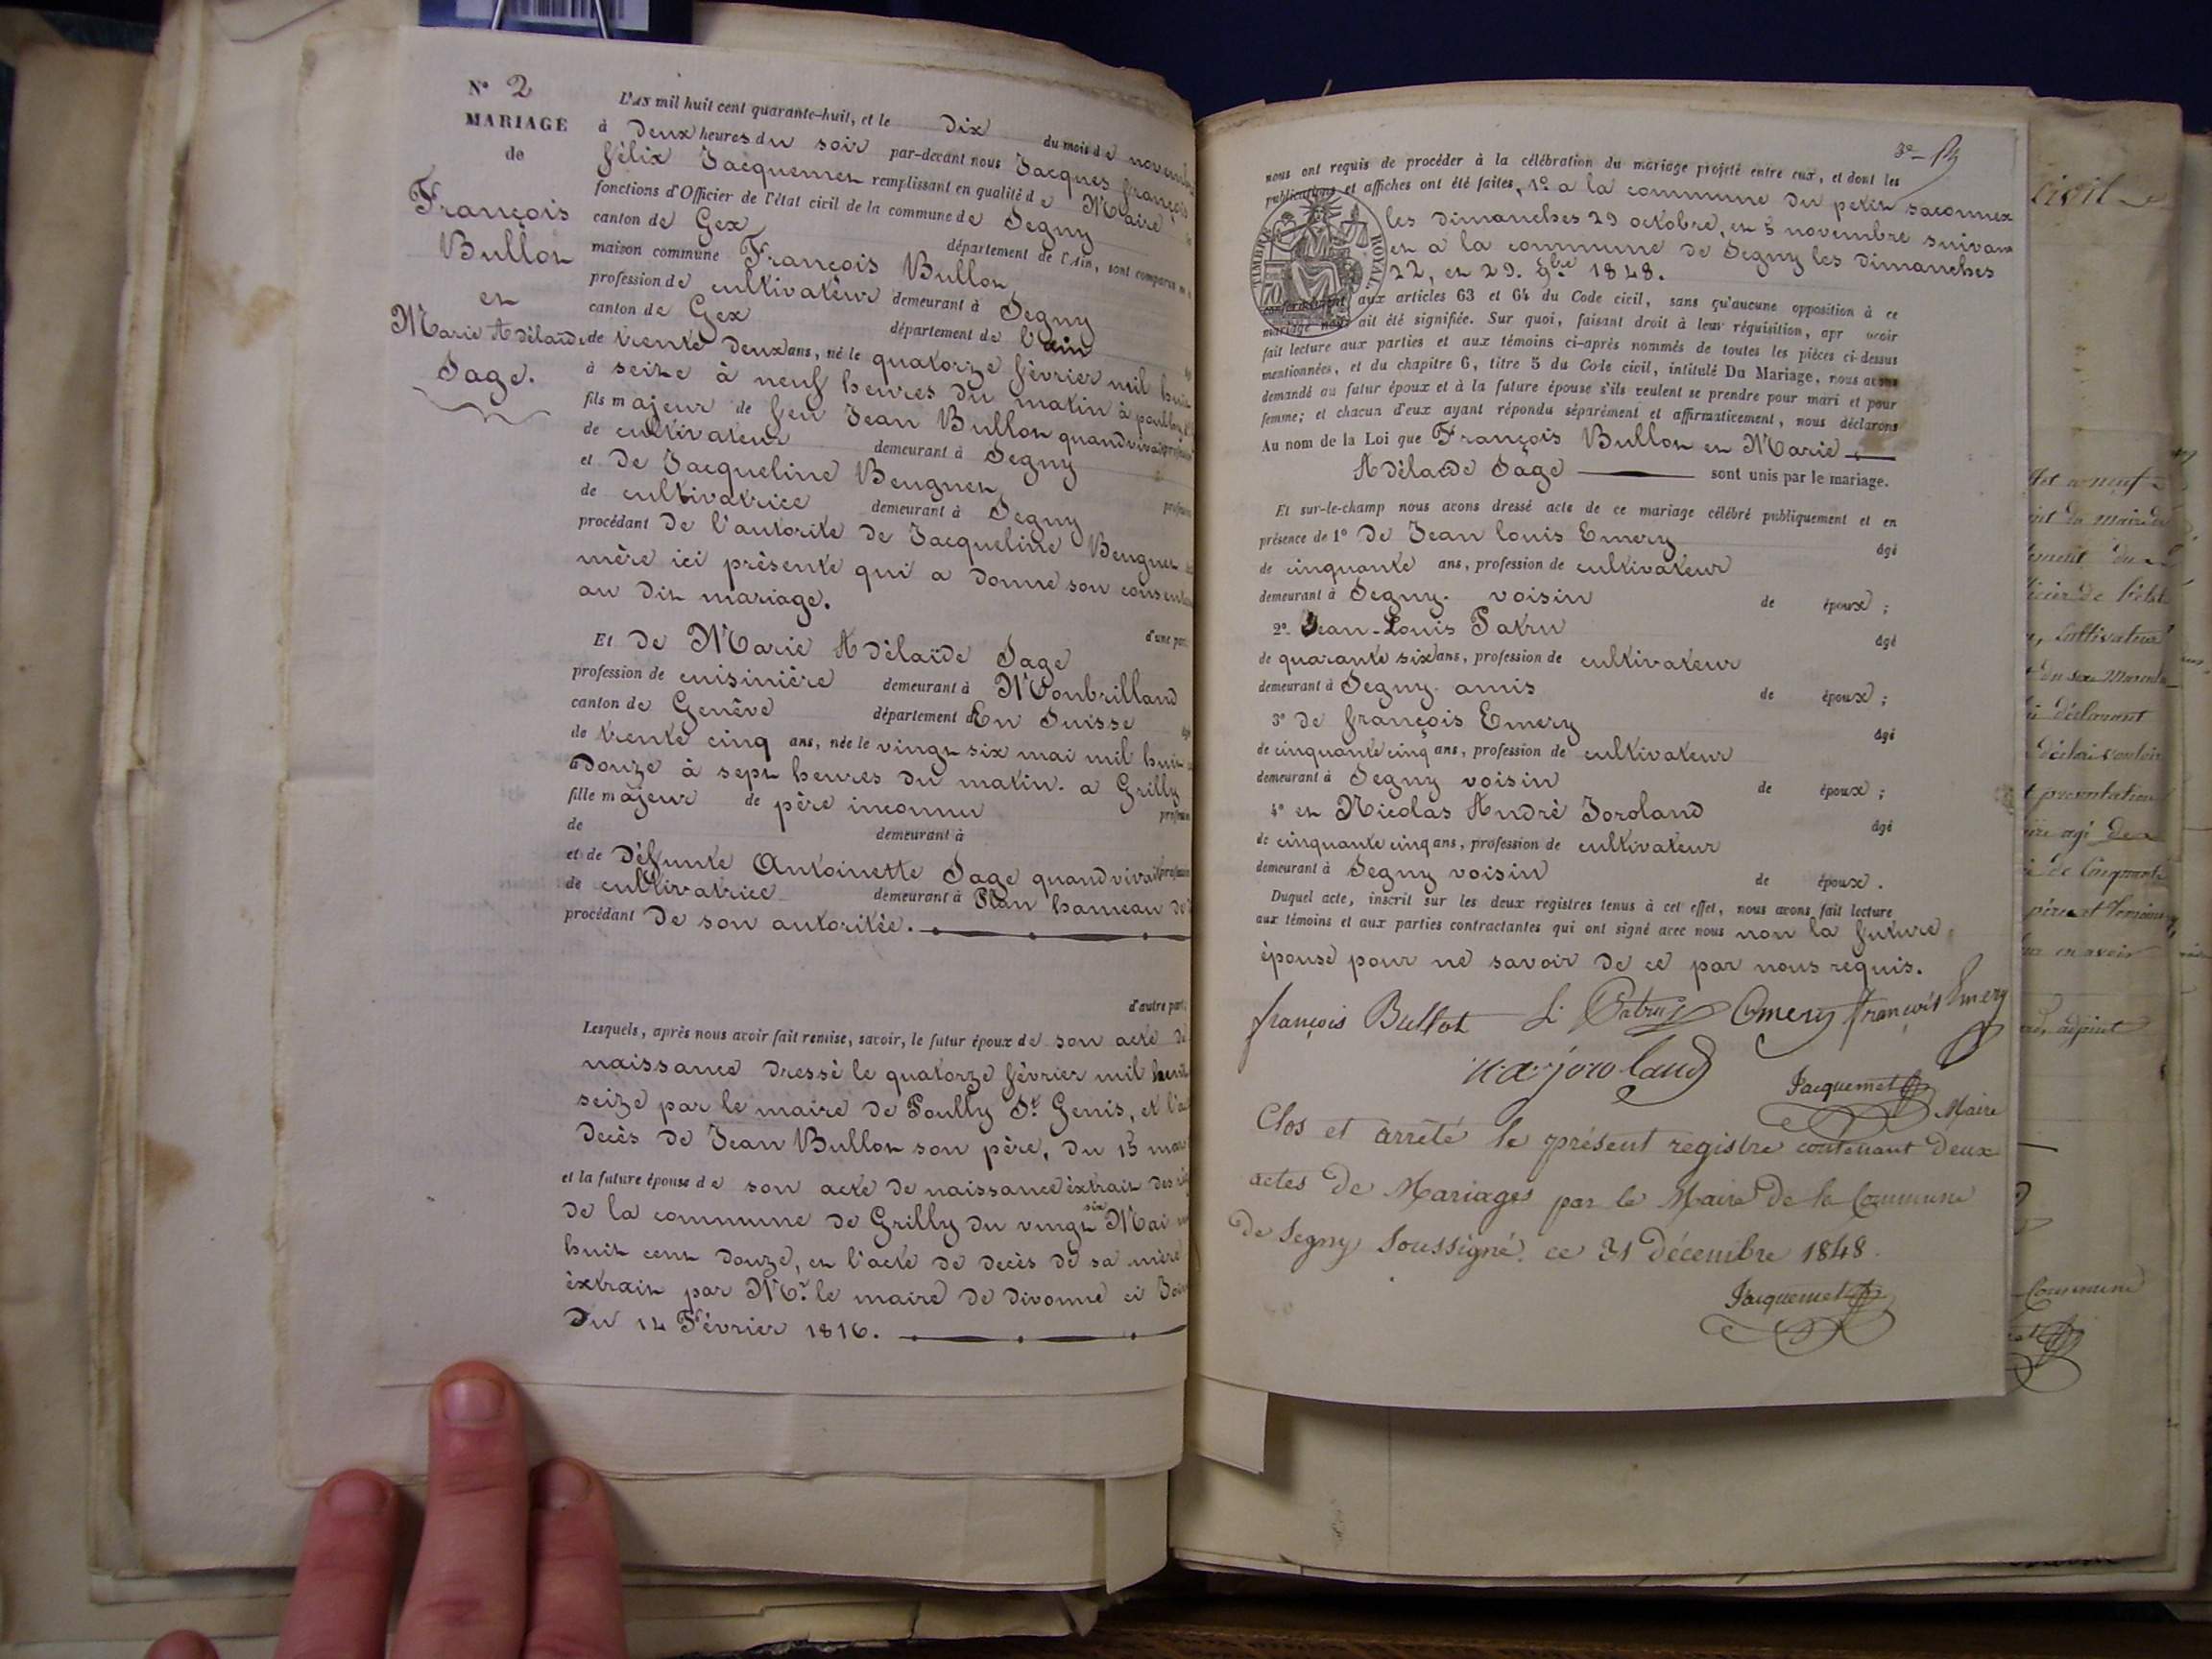 N° 2
MARIAGE
de
François
Bullot
et
Marie Adélaïde
Sage.
L'an mil huit cent quarante-huit, et le dix du mois de novembre
à deux heures du soir par-devant nous Jacques françois
félix Jacquemet remplissant en qualité de Maire
fonctions d'Officier de l'état civil de la commune de Segny
canton de Gex département de l'Ain, sont comparus
maison commune François Bullot
profession de cultivateur demeurant à Segny
canton de Gex département de l'ain
de trente deux ans, né le quatorze février mil huit
à seize à neuf heures du matin à pouilly
fils majeur de feu Jean Bullot quand vivait
de cultivateur demeurant à Segny
et de Jacqueline Beugnet
de cultivatrice demeurant à Segny
procédant de l'autorité de Jacqueline Beugnet
mère ici présente qui a donné son
au dit mariage.
d'une part
Et de Marie Adélaïde Sage
profession de cuisinière demeurant à Monbrilland
canton de Genève département d En Suisse
de trente cinq ans, née le vingt six mai mil huit
douze à sept heures du matin. a Grilly
fille majeur de père inconnu
de demeurant à
et de défunte Antoinette Sage quand vivait
de cultivatrice demeurant à Plan hameau de
procédant de son autoritée.
d'autre part
Lesquels, après nous avoir fait remise, savoir, le futur époux de son acte de
naissance dressé le quatorze février mil huit
seize par le maire de Pouilly St. Genis, et l'a
décès de Jean Bullot son père, du 15
et la future épouse de son acte de naissance extrait des
de la commune de Grilly du vingt six Mai
huit cent douze, et l'acte de décès de sa mère
extrait par Mr. le maire de divonne ci
Du 14 Février 1816.
3e
nous ont requis de procéder à la célébration du mariage projeté entre eux, et dont les
publications et affiches ont été faites, 1° a la commune du petit saconnex
les dimanches 29 octobre, et 5 novembre suivant
et a la commune de Segny les dimanches
22, et 29. 1848.
TIMBRE ROYAL
conformément aux articles 63 et 64 du Code civil, sans qu'aucune opposition à ce
mariage nous ait été signifiée. Sur quoi, faisant droit à leur réquisition, apr avoir
fait lecture aux parties et aux témoins ci-après nommés de toutes les pièces ci-dessus
mentionnées, et du chapitre 6, titre 5 du Code civil, intitulé Du Mariage, nous avons
demandé au futur époux et à la future épouse s'ils veulent se prendre pour mari et pour
femme; et chacun d'eux ayant répondu séparément et affirmativement, nous déclarons
Au nom de la Loi que François Bullot et Marie
Adélaide Sage sont unis par le mariage.
Et sur-le-champ nous avons dressé acte de ce mariage célébré publiquement et en
présence de 1° de Jean louis Emery âgé
de cinquante ans, profession de cultivateur
demeurant à Segny. voisin de époux ;
2° Jean-Louis Patru âgé
de quarante six ans, profession de cultivateur
demeurant à Segny. amis de époux ;
3° de françois Emery âgé
de cinquante cinq ans, profession de cultivateur
demeurant à Segny voisin de époux ;
4° et Nicolas André Joroland âgé
de cinquante cinq ans, profession de cultivateur
demeurant à Segny voisin de époux.
Duquel acte, inscrit sur les deux registres tenus à cet effet, nous avons fait lecture
aux témoins et aux parties contractantes qui ont signé avec nous non la future
épouse pour ne savoir de ce par nous requis.
françois Bullot L. Patru Emery françois Emery
n.a. jorolland
Jacquemet Maire
Clos et arrêté le présent registre contenant deux
actes de Mariages par le Maire de la Commune
de Segny soussigné. ce 31 décembre 1848.
Jacquemet
civil
Commune